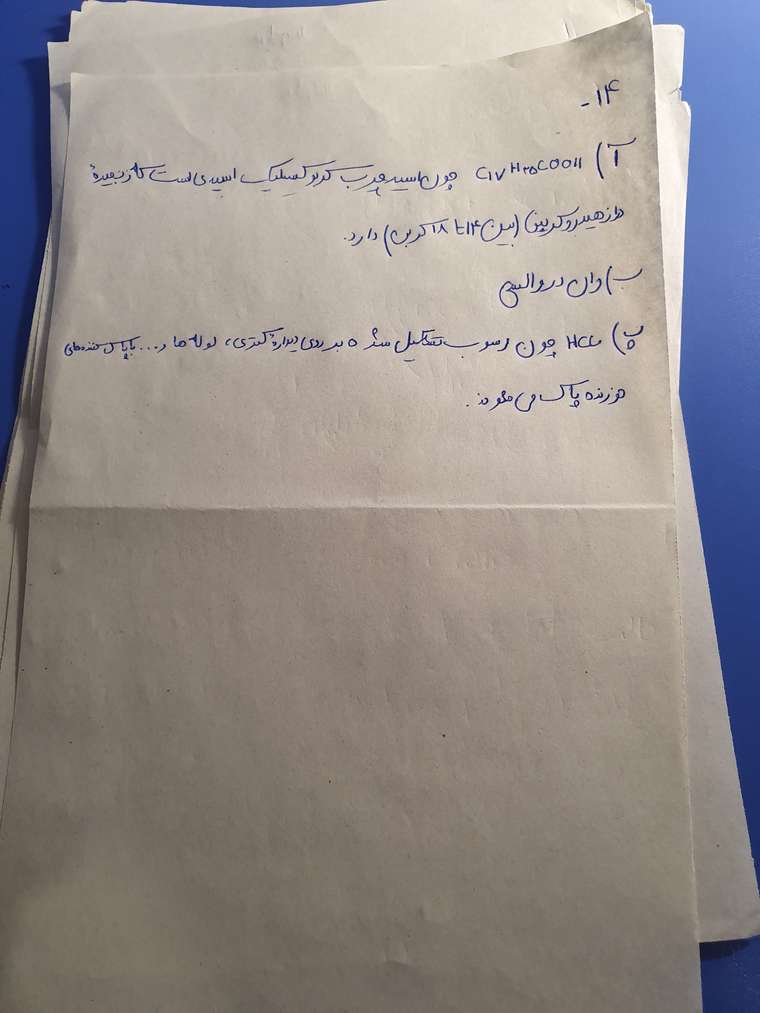 ۱۴-
آ) C۱۷H۳۵COOH چون اسید چرب کربوکسیلیک اسیدی است که زنجیرهٔ
هیدروکربنی (بین ۱۴ تا ۱۸ کربن) دارد.
ب) وان دروالسی
پ) HCl چون رسوب تشکیل شده بر روی دیوارهٔ کتری، لوله ها و... با پاک کننده‌های
خورنده پاک می شوند.